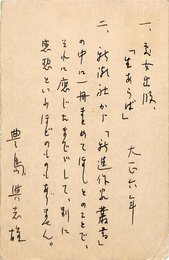 一、処女出版、
「生あらば」
大正六年
二、新潮社から「新進作家叢書」
の中に一冊まとめてほしとのことで、
それに應じたまでゞして、別に
感想といふほどのものもありません。
豊島與志雄